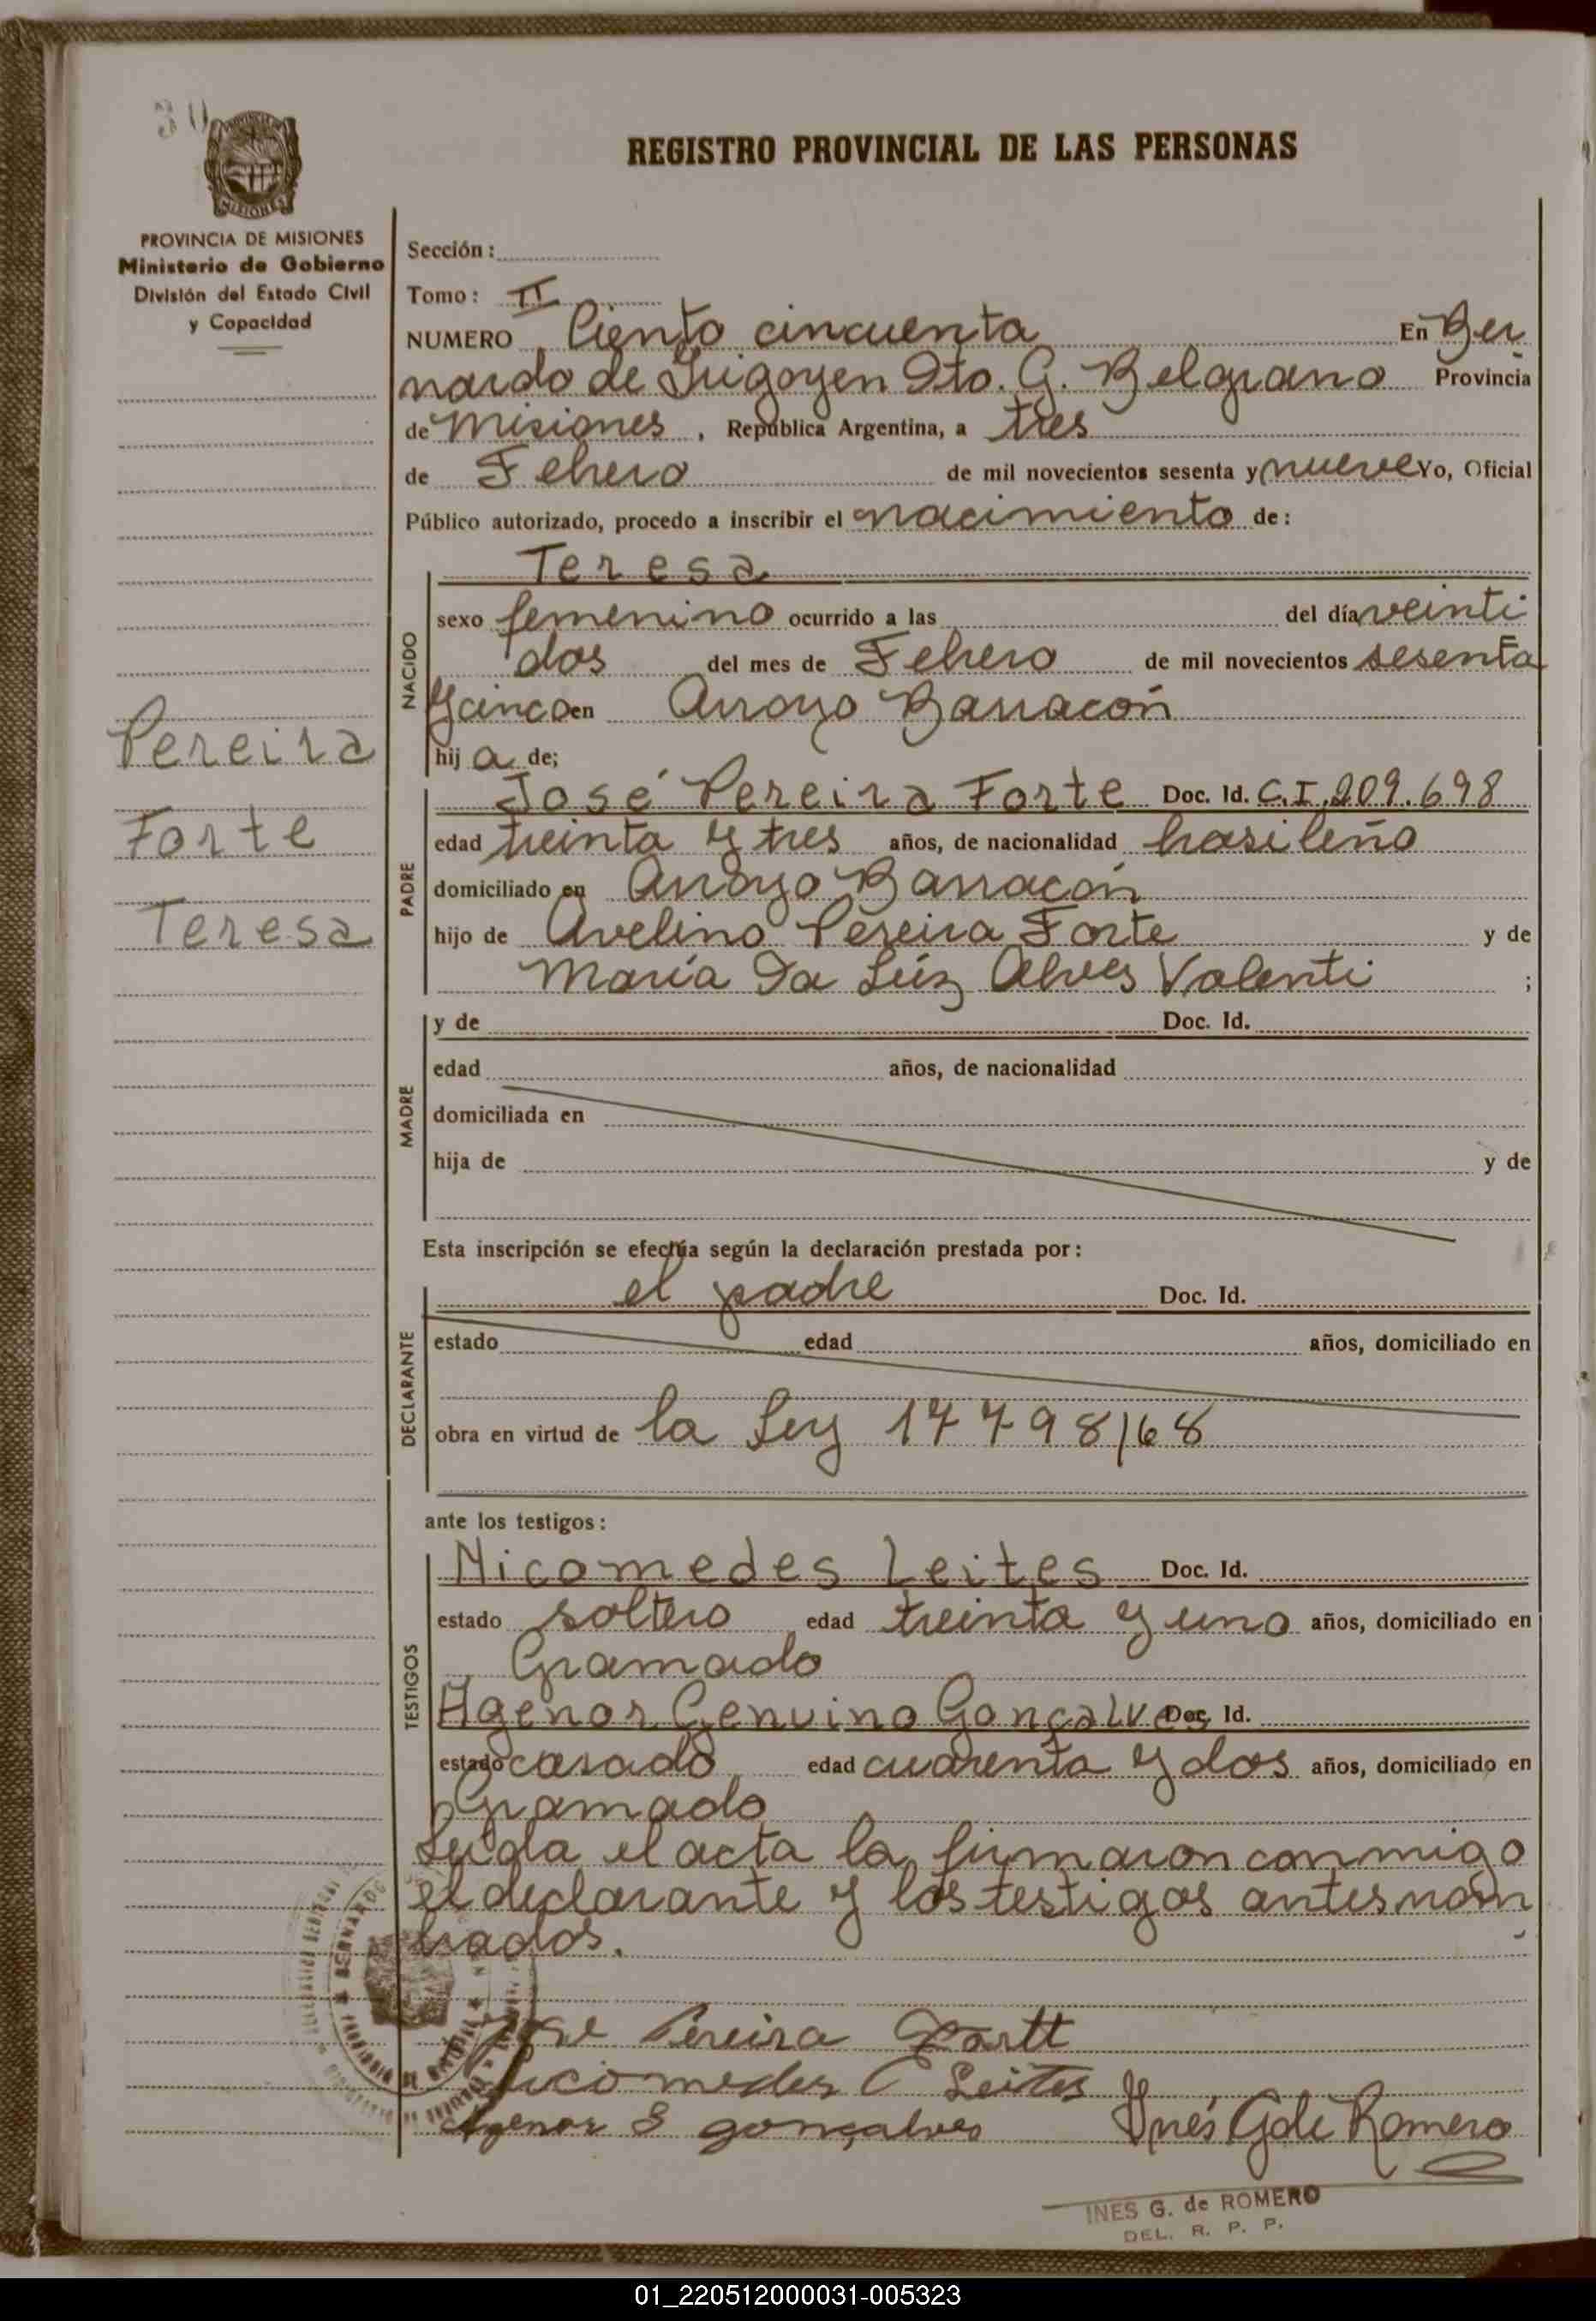 30
REGISTRO PROVINCIAL DE LAS PERSONAS
MISIONES
PROVINCIA DE MISIONES
Ministerio de Gobierno
División del Estado Civil
y Capacidad
Sección:
Tomo: II
NUMERO Ciento cincuenta En Ber
nardo de Irigoyen Dto. G. Belgrano Provincia
de Misiones, República Argentina, a tres
de Febrero de mil novecientos sesenta y nueve Yo, Oficial
Público autorizado, procedo a inscribir el nacimiento de:
NACIDO
Teresa
sexo femenino ocurrido a las del día veinti
dos del mes de Febrero de mil novecientos sesenta
y cinco en Arroyo Barracón
hij a de;
Pereira
Forte
Teresa
PADRE
José Pereira Forte Doc. Id. C.I. 209.698
edad treinta y tres años, de nacionalidad brasileño
domiciliado en Arroyo Barracón
hijo de Avelino Pereira Forte y de
María Da Lúz Alves Valenti ;
MADRE
y de Doc. Id.
edad años, de nacionalidad
domiciliada en
hija de y de
Esta inscripción se efectúa según la declaración prestada por:
DECLARANTE
el padre Doc. Id.
estado edad años, domiciliado en
obra en virtud de la Ley 17798/68
ante los testigos:
TESTIGOS
Nicomedes Leites Doc. Id.
estado soltero edad treinta y uno años, domiciliado en
Gramado
Agenor Genuino Gonçalves Doc. Id.
estado casado edad cuarenta y dos años, domiciliado en
Gramado
Leída el acta la firmaron conmigo
el declarante y los testigos antes nom
brados.
BERNARDO DE
José Pereira Fortt
Nicomedes C Leites
Agenor G gonçalves Inés G de Romero
INES G. de ROMERO
DEL. R. P. P.
01_220512000031-005323